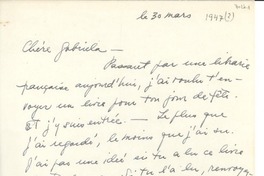 le 30 mars 1947(?)
Chère Gabriela —
Passant par une librarie
française aujourd'hui, j'ai voulu t'en-
voyer un livre pour ton jour de fête
Et j'y suis entrée — Le plus que
j'ai regardé, le moins que j'ai su.
J'ai pas une idée si tu a lu ce livre
Si tu l'a lu, renvoya-